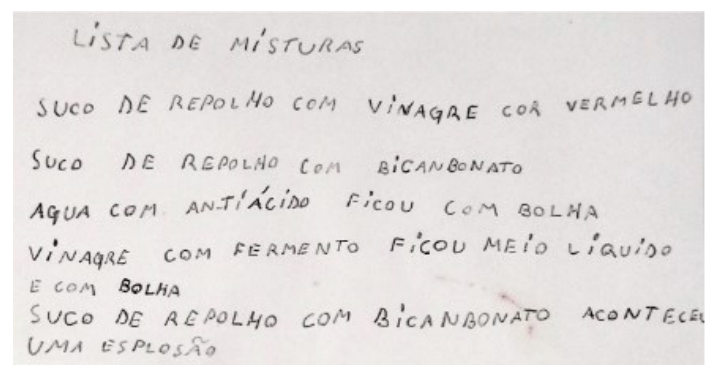 LISTA DE MISTURAS
SUCO DE REPOLHO COM VINAGRE COR VERMELHO
SUCO DE REPOLHO COM BICANBONATO
AGUA COM ANTIÁCIDO FICOU COM BOLHA
VINAGRE COM FERMENTO FICOU MEIO LÍQUIDO
E COM BOLHA
SUCO DE REPOLHO COM BICANBONATO ACONTECEU
UMA ESPLOSÃO